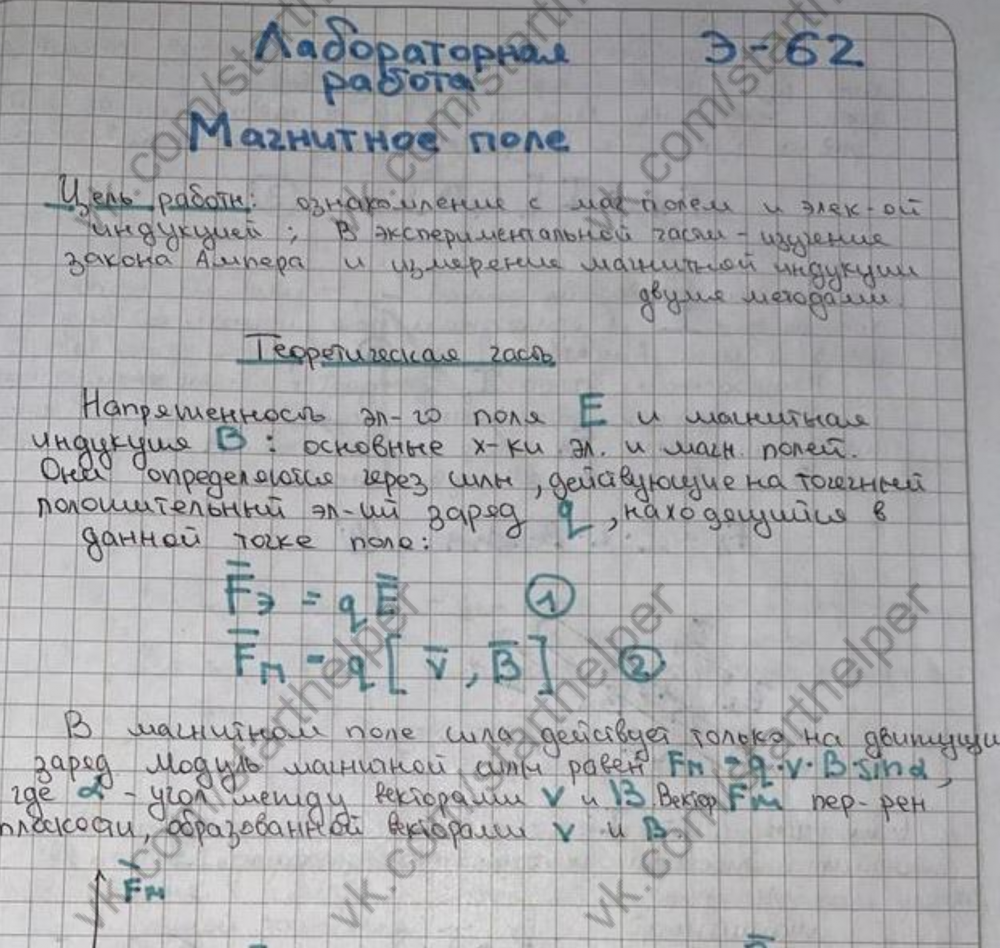 Лабораторная Э-62
работа
Магнитное поле
Цель работы: ознакомление с маг полем и элек-ой
индукцией; В экспериментальной части - изучение
закона Ампера и измерение магнитной индукции
двумя методами
Теоретическая часть
Напряженность эл-го поля E и магнитная
индукция B: основные х-ки эл. и магн. полей.
Они определяются через силы, действующие на точечный
положительный эл-ий заряд q, находящийся в
данной точке поле:
F̅э = q E̅ ①
F̅м = q [ v̅, B̅ ] ②
В магнитном поле сила действует только на движущи
заряд Модуль магнитной силы равен Fм = q·v·B·sinα,
где α - угол между векторами v и B. Вектор Fм пер-рен
плоскости, образованной векторами v и B.
F̅м
vk.com/starthelper